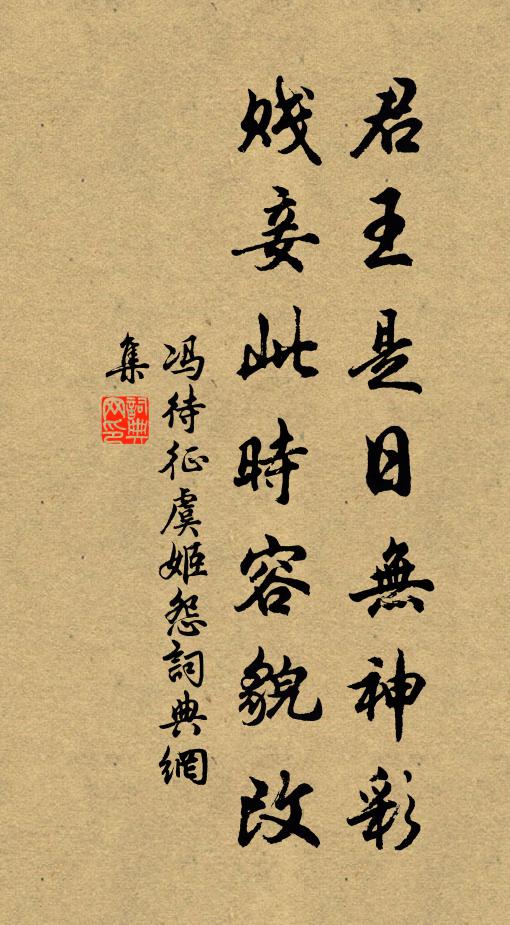 君王是日無神彩
賤妾此時容貌改
冯待征虞姬怨詞典網
集
詞典网印